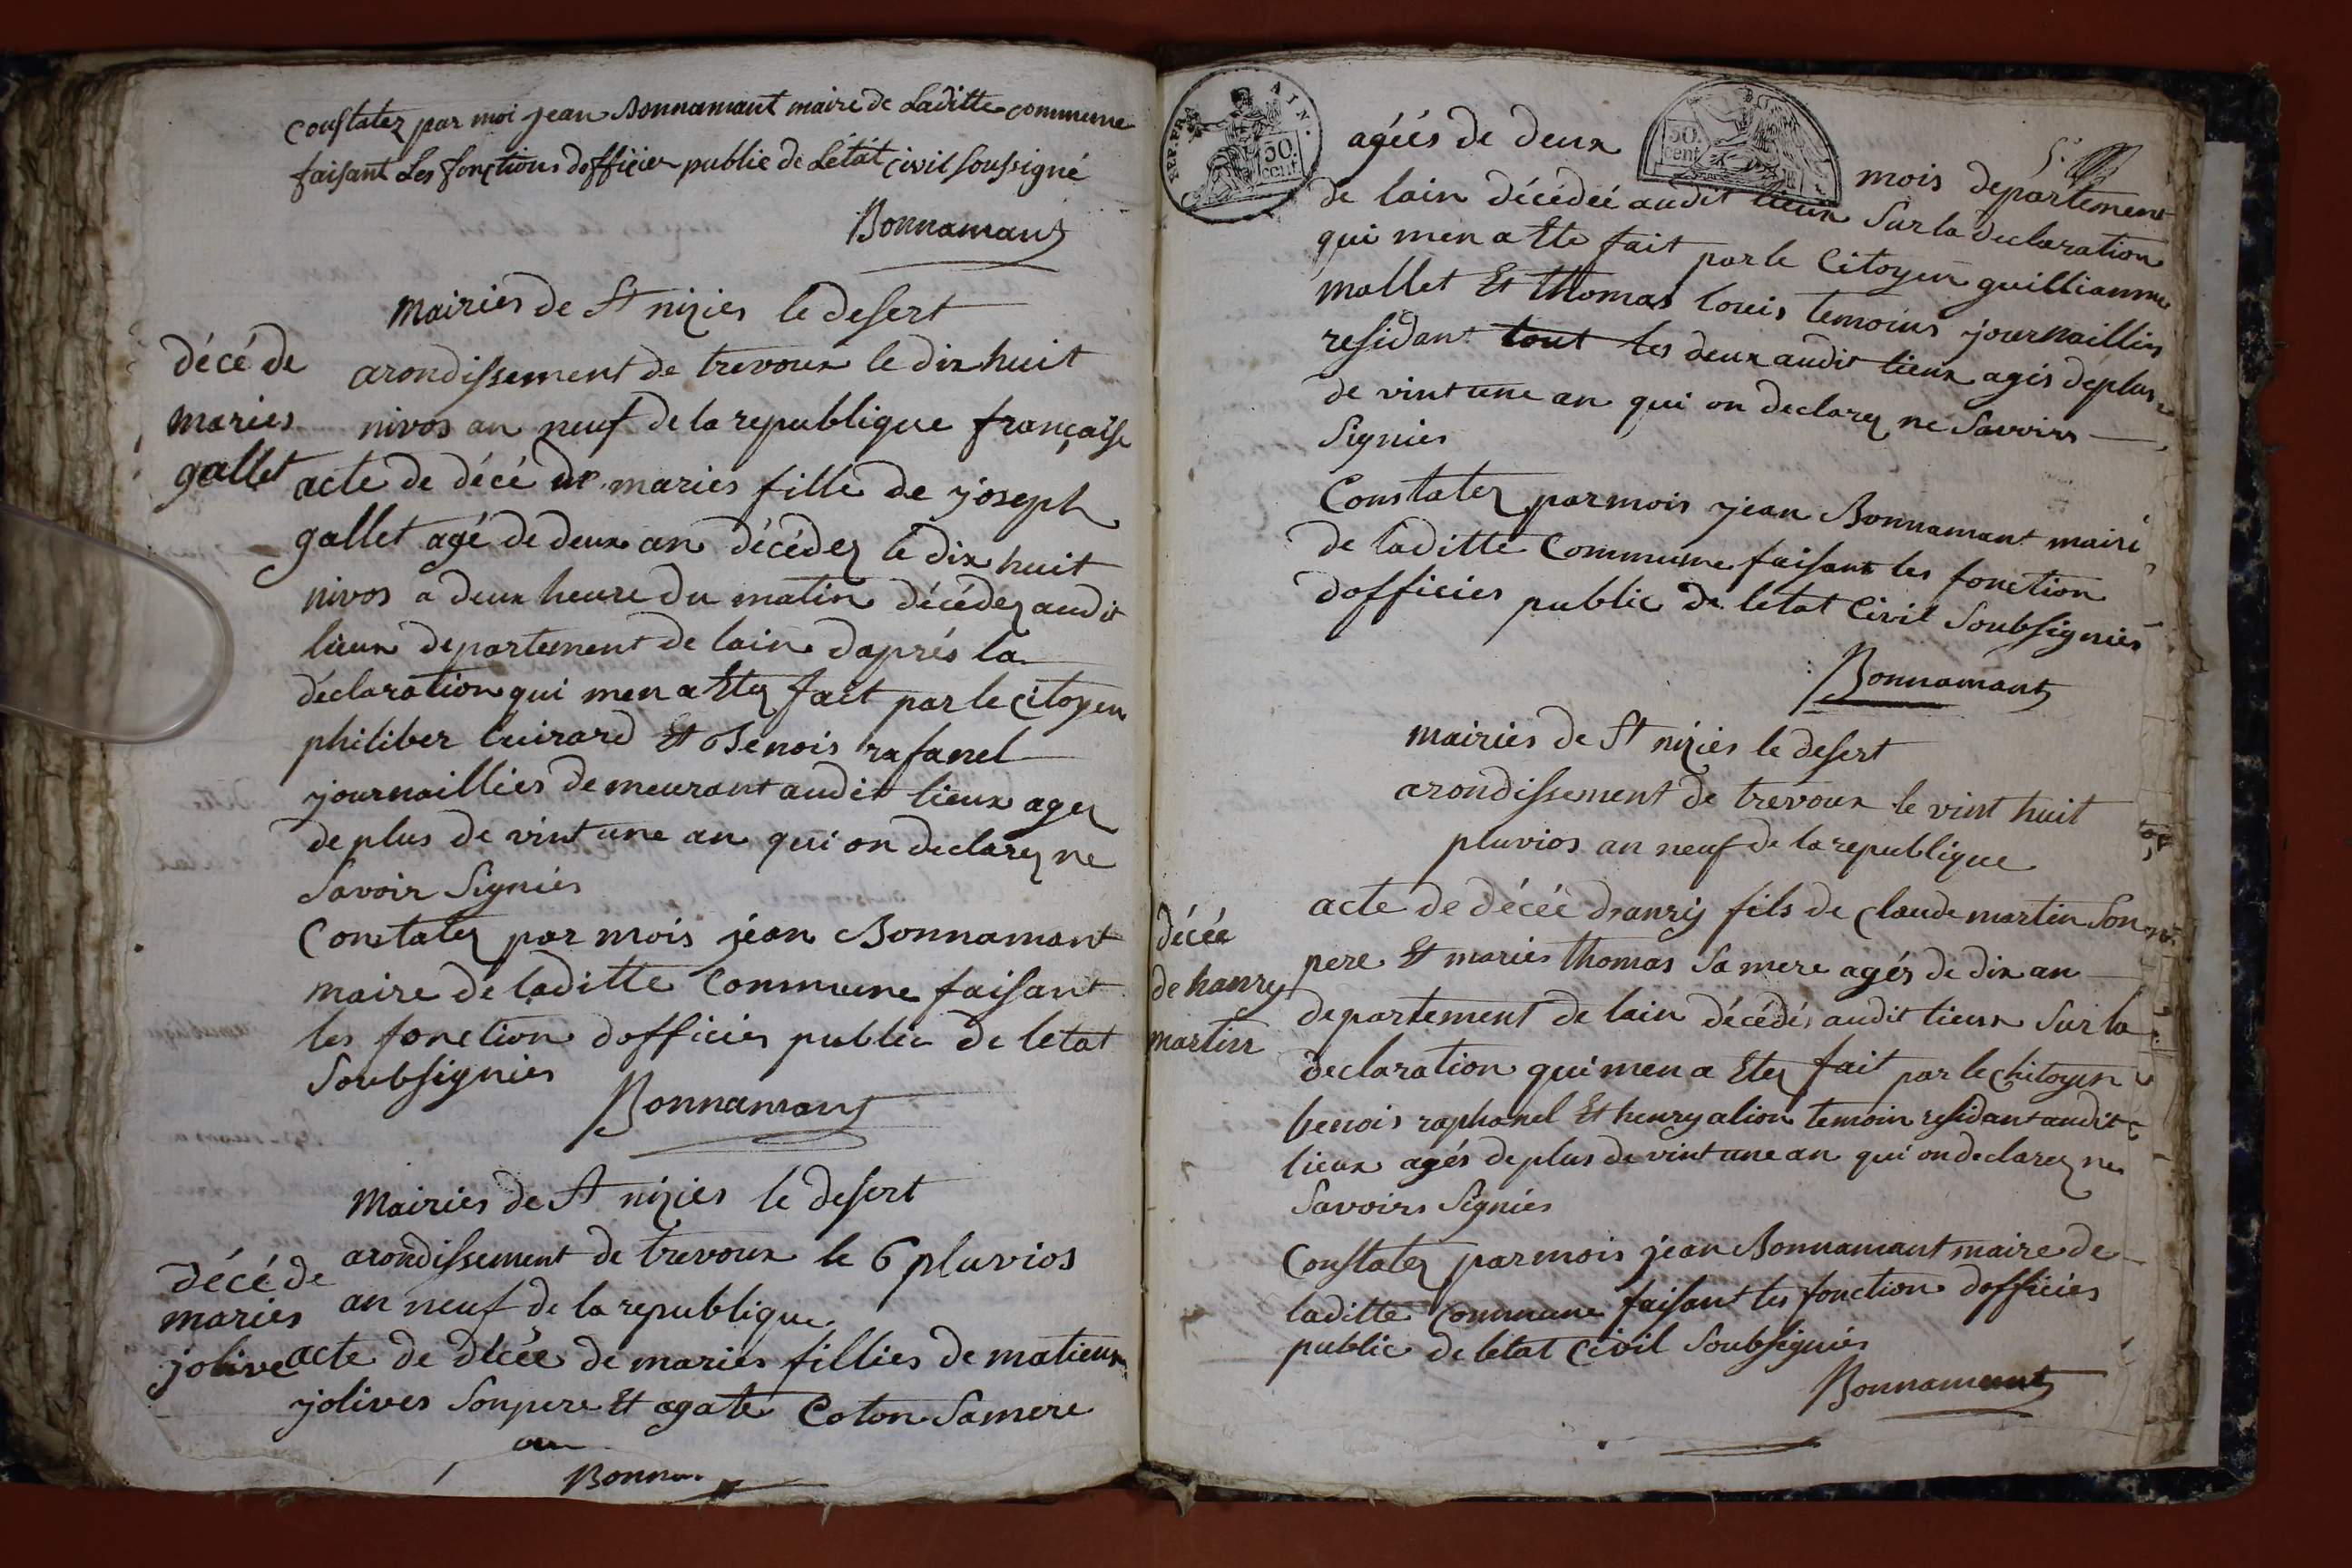 Constatez par moi jean Bonnamant maire de Laditte commune
faisant Les fonctions dofficier public de Létat civil soussigné
Bonnamant
Mairies de St nizies le desert
décé de
maries
gallet
arondissement de trevoux le dix huit
nivos an neuf de la republique française
acte de décé de maries fille de joseph
gallet agé de deux an décédez le dix huit
nivos a deux heure du matin décédez audit
lieux departement de lain daprés la
déclaration qui men a Etez fait par le citoyen
philiber luirard Et Benois rafanel
journaillies demeurant audit lieux agez
de plus de vint une an qui on declarez ne
Savoir Signies
Constatez par mois jean Bonnamant
maire de laditte Commune faisant
les fonction dofficies public de letat
Soubsignies
Bonnamant
Mairies de St nizies le desert
décé de
maries
jolive
arondissement de trevoux le 6 pluvios
an neuf de la republique
acte de décée de maries fillies de matieux
jolives Son pere Et agate Coton Sa mere
Bonna
REP. FRA
AIN.
50
cent
50.
cent
agéés de deux mois departement
de lain décédéé audit lieux Sur la declaration
qui men a Ete fait par le Citoyen guillianme
mallet Et thomas louis temoins journaillies
residant tout les deux audit lieux agés de plus
de vint une an qui on declarez ne Savoirs
Signies
Constatez par mois jean Bonnamant maire
de laditte Commune faisant les fonction
dofficies public de letat Civil Soubsignies
Bonnamant
mairies de St nizies le desert
arondissement de trevoux le vint huit
pluvios an neuf de la republique
décée
de hanry
martin
acte de décéé dranrij fils de claude martin Son
pere Et maries thomas Sa mere agés de dix an
departement de lain décédés audit lieux Sur la
declaration qui men a Etez fait par le chitoyen
benois raphanel Et henry alion temoin residant audit
lieux agés de plus de vint une an qui on declarez ne
Savoirs Signies
Constatez par mois jean Bonnamant maire de
laditte Commune faisant les fonction dofficies
public de letat Civil Soubsignies
Bonnamant